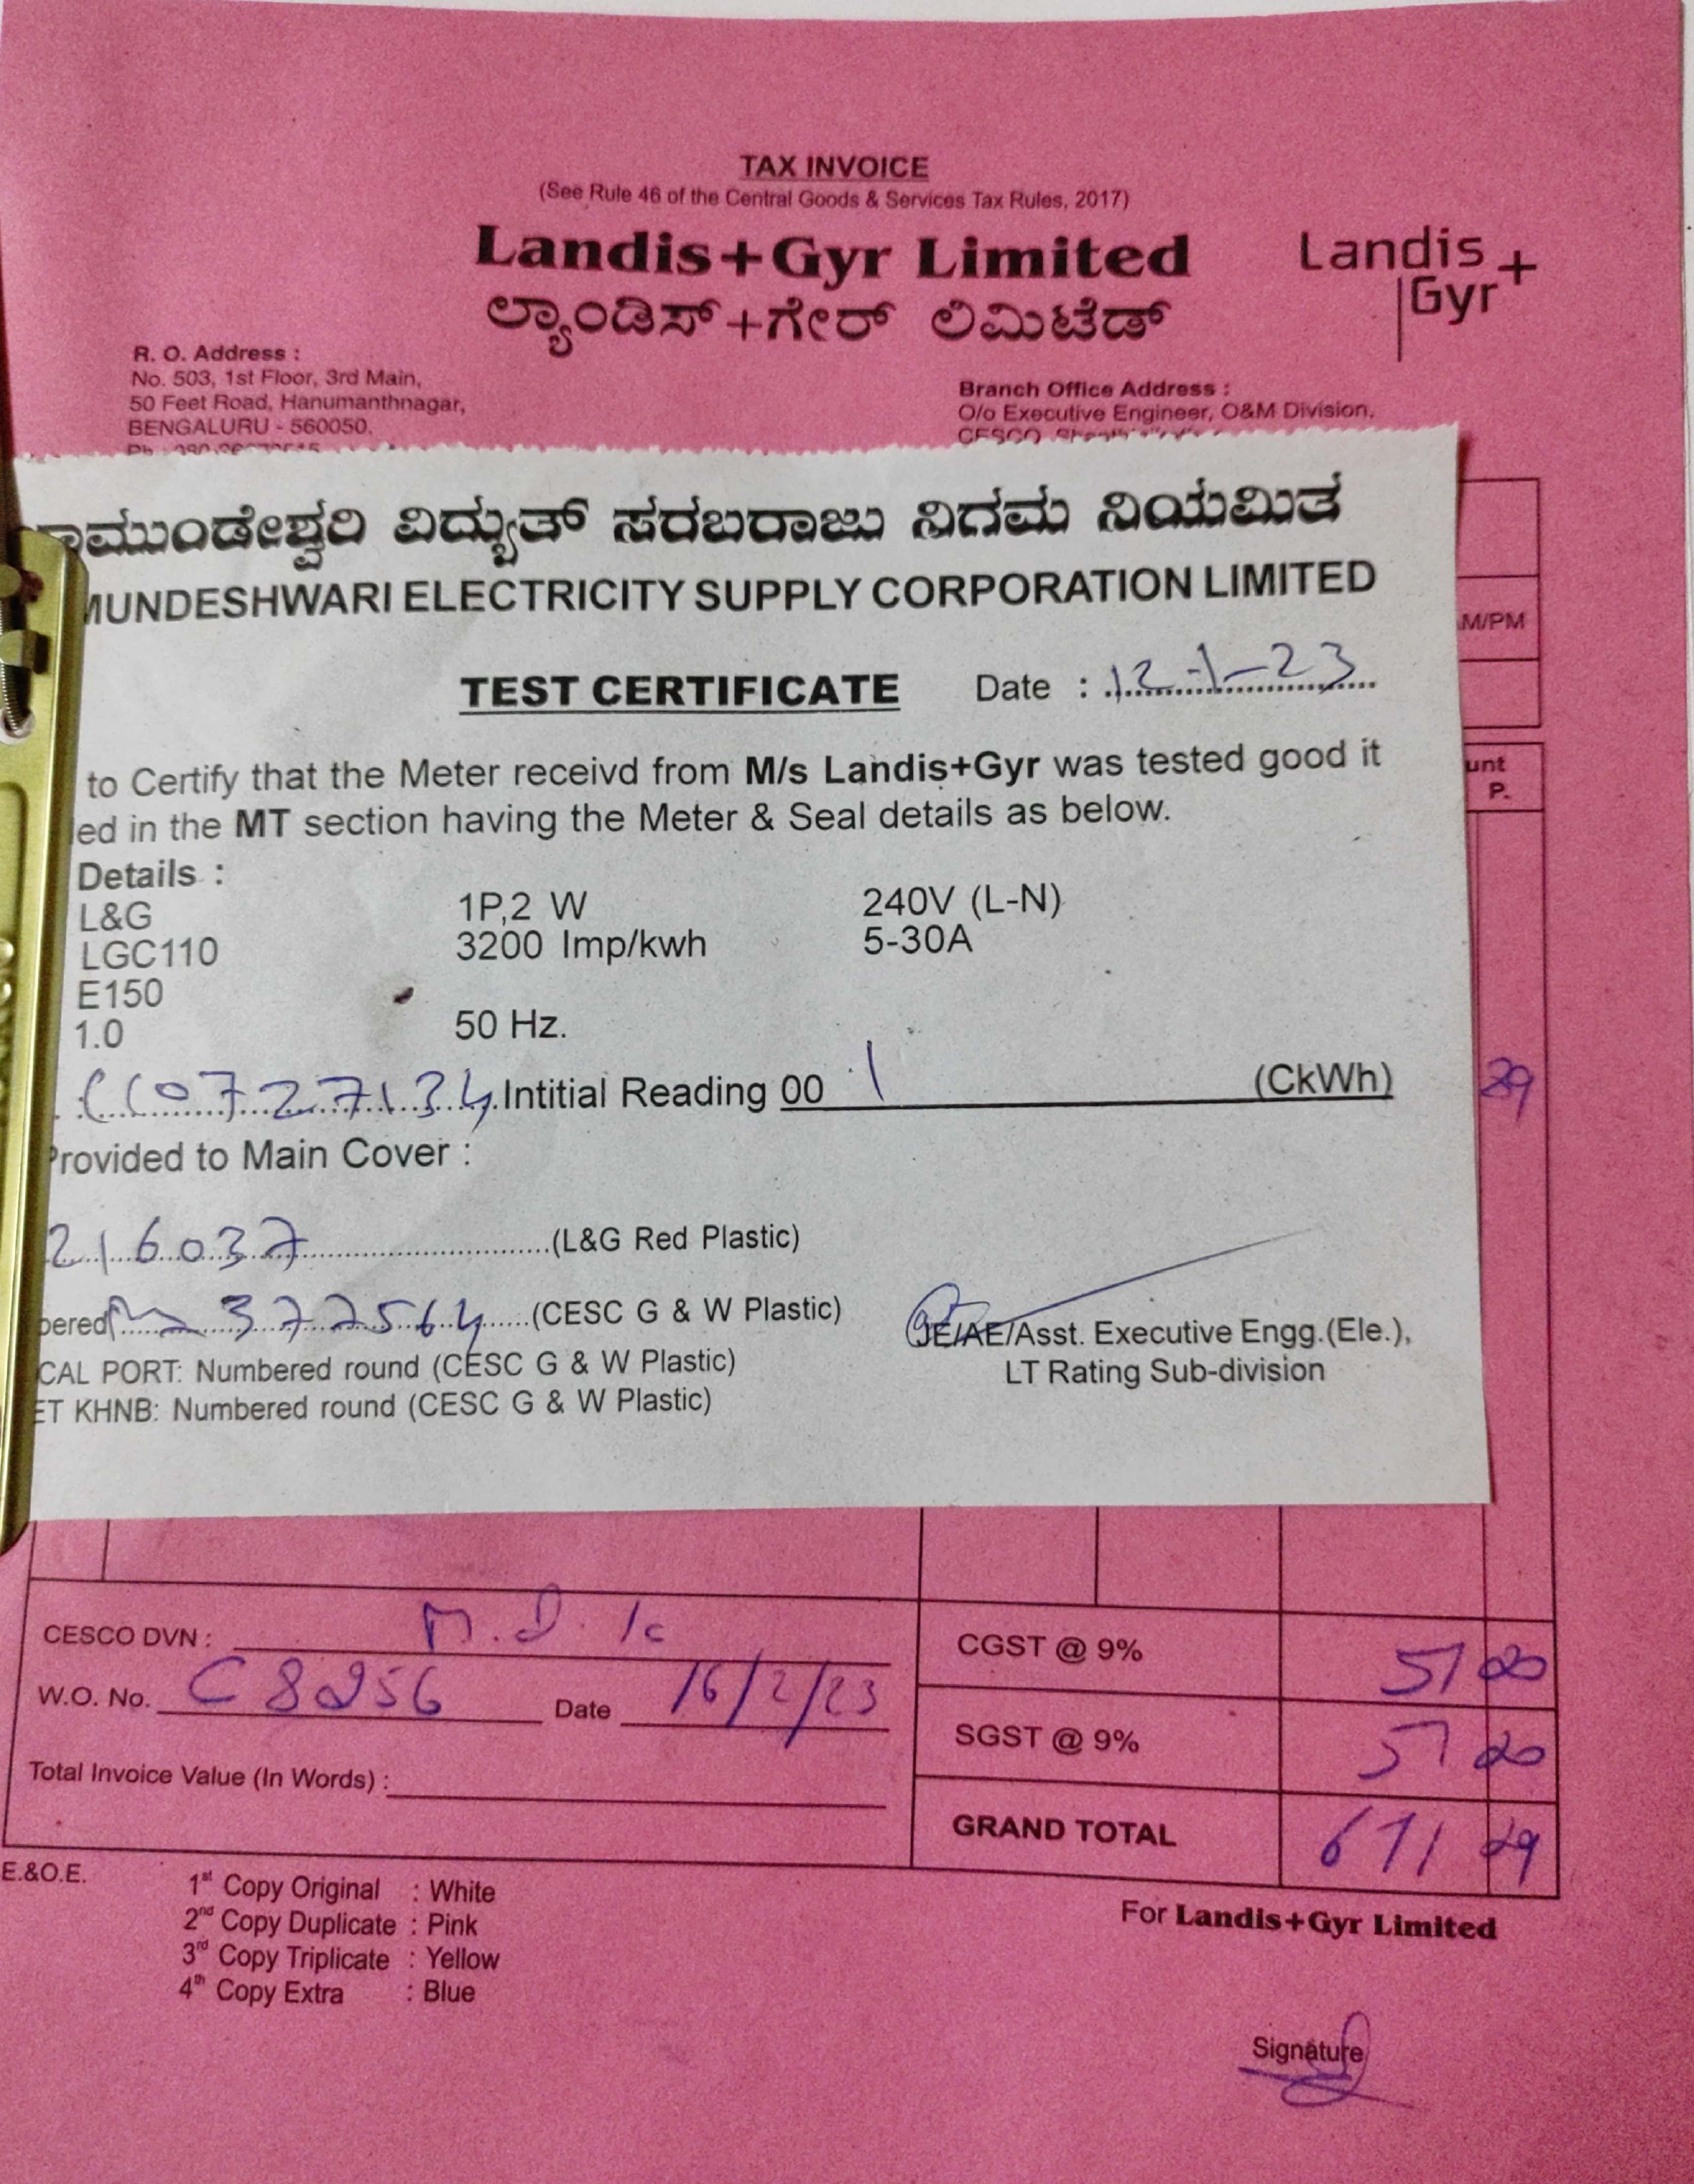 TAX INVOICE
(See Rule 46 of the Central Goods & Services Tax Rules, 2017)
Landis+Gyr Limited
Landis+
Gyr
ಲ್ಯಾಂಡಿಸ್+ಗೇರ್ ಲಿಮಿಟೆಡ್
R. O. Address :
No. 503, 1st Floor, 3rd Main,
50 Feet Road, Hanumanthnagar,
BENGALURU - 560050.
Branch Office Address :
O/o Executive Engineer, O&M Division,
CESCO,
ಾಮುಂಡೇಶ್ವರಿ ವಿದ್ಯುತ್ ಸರಬರಾಜು ನಿಗಮ ನಿಯಮಿತ
MUNDESHWARI ELECTRICITY SUPPLY CORPORATION LIMITED
M/PM
TEST CERTIFICATE Date : 12-1-23
to Certify that the Meter receivd from M/s Landis+Gyr was tested good it
led in the MT section having the Meter & Seal details as below.
unt
P.
Details :
L&G 1P,2 W 240V (L-N)
LGC110 3200 Imp/kwh 5-30A
E150
1.0 50 Hz.
Intitial Reading 00 1 (CkWh)
Provided to Main Cover :
216037 (L&G Red Plastic)
bered 377564 (CESC G & W Plastic)
JE/AE/Asst. Executive Engg.(Ele.),
CAL PORT: Numbered round (CESC G & W Plastic)
LT Rating Sub-division
ET KHNB: Numbered round (CESC G & W Plastic)
CESCO DVN : M.D.
CGST @ 9% 51
W.O. No. C8256 Date 16/2/23
SGST @ 9% 51
Total Invoice Value (In Words) :
GRAND TOTAL 671
E.&O.E.
1st Copy Original : White
2nd Copy Duplicate : Pink
3rd Copy Triplicate : Yellow
4th Copy Extra : Blue
For Landis+Gyr Limited
Signature